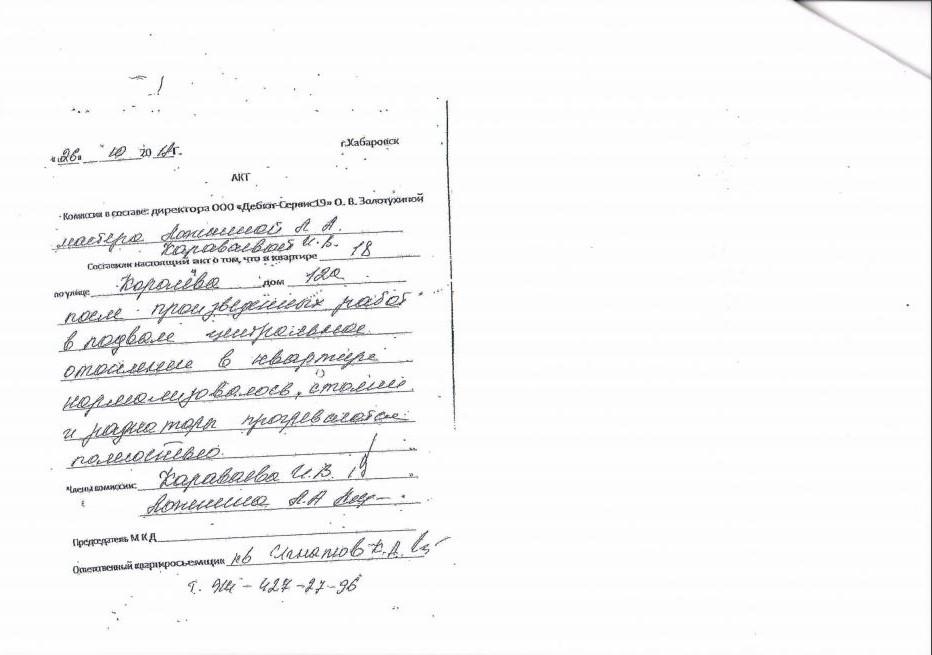 «26» 10 20 г.
г.Хабаровск
АКТ
Комиссия в составе: директора ООО «Дебют-Сервис19» О. В. Золотухиной
мастера А. А.
Караваевой И.В.
Составили настоящий акт о том, что в квартире 18
по улице Королёва дом 12а
после произведенных работ
в подвале центральное
отопление в квартире
нормализовалось, стояки
и радиаторы прогреваются
полностью.
Члены комиссии: Караваева И.В.
А.А
Председатель М К Д
Ответственный квартиросъемщик кв Игнатов К.А.
т. 914-427-27-96